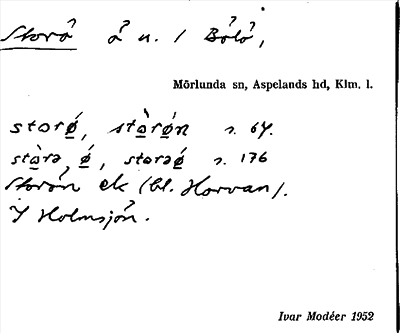 Storö ö n. / Bölö,
Mörlunda sn, Aspelands hd, Klm. l.
storø, stàrøn s. 64.
stàrə, ǿ, storəǿ s. 176
Storön ek (bl. Horvan).
I Holmsjön.
Ivar Modéer 1952